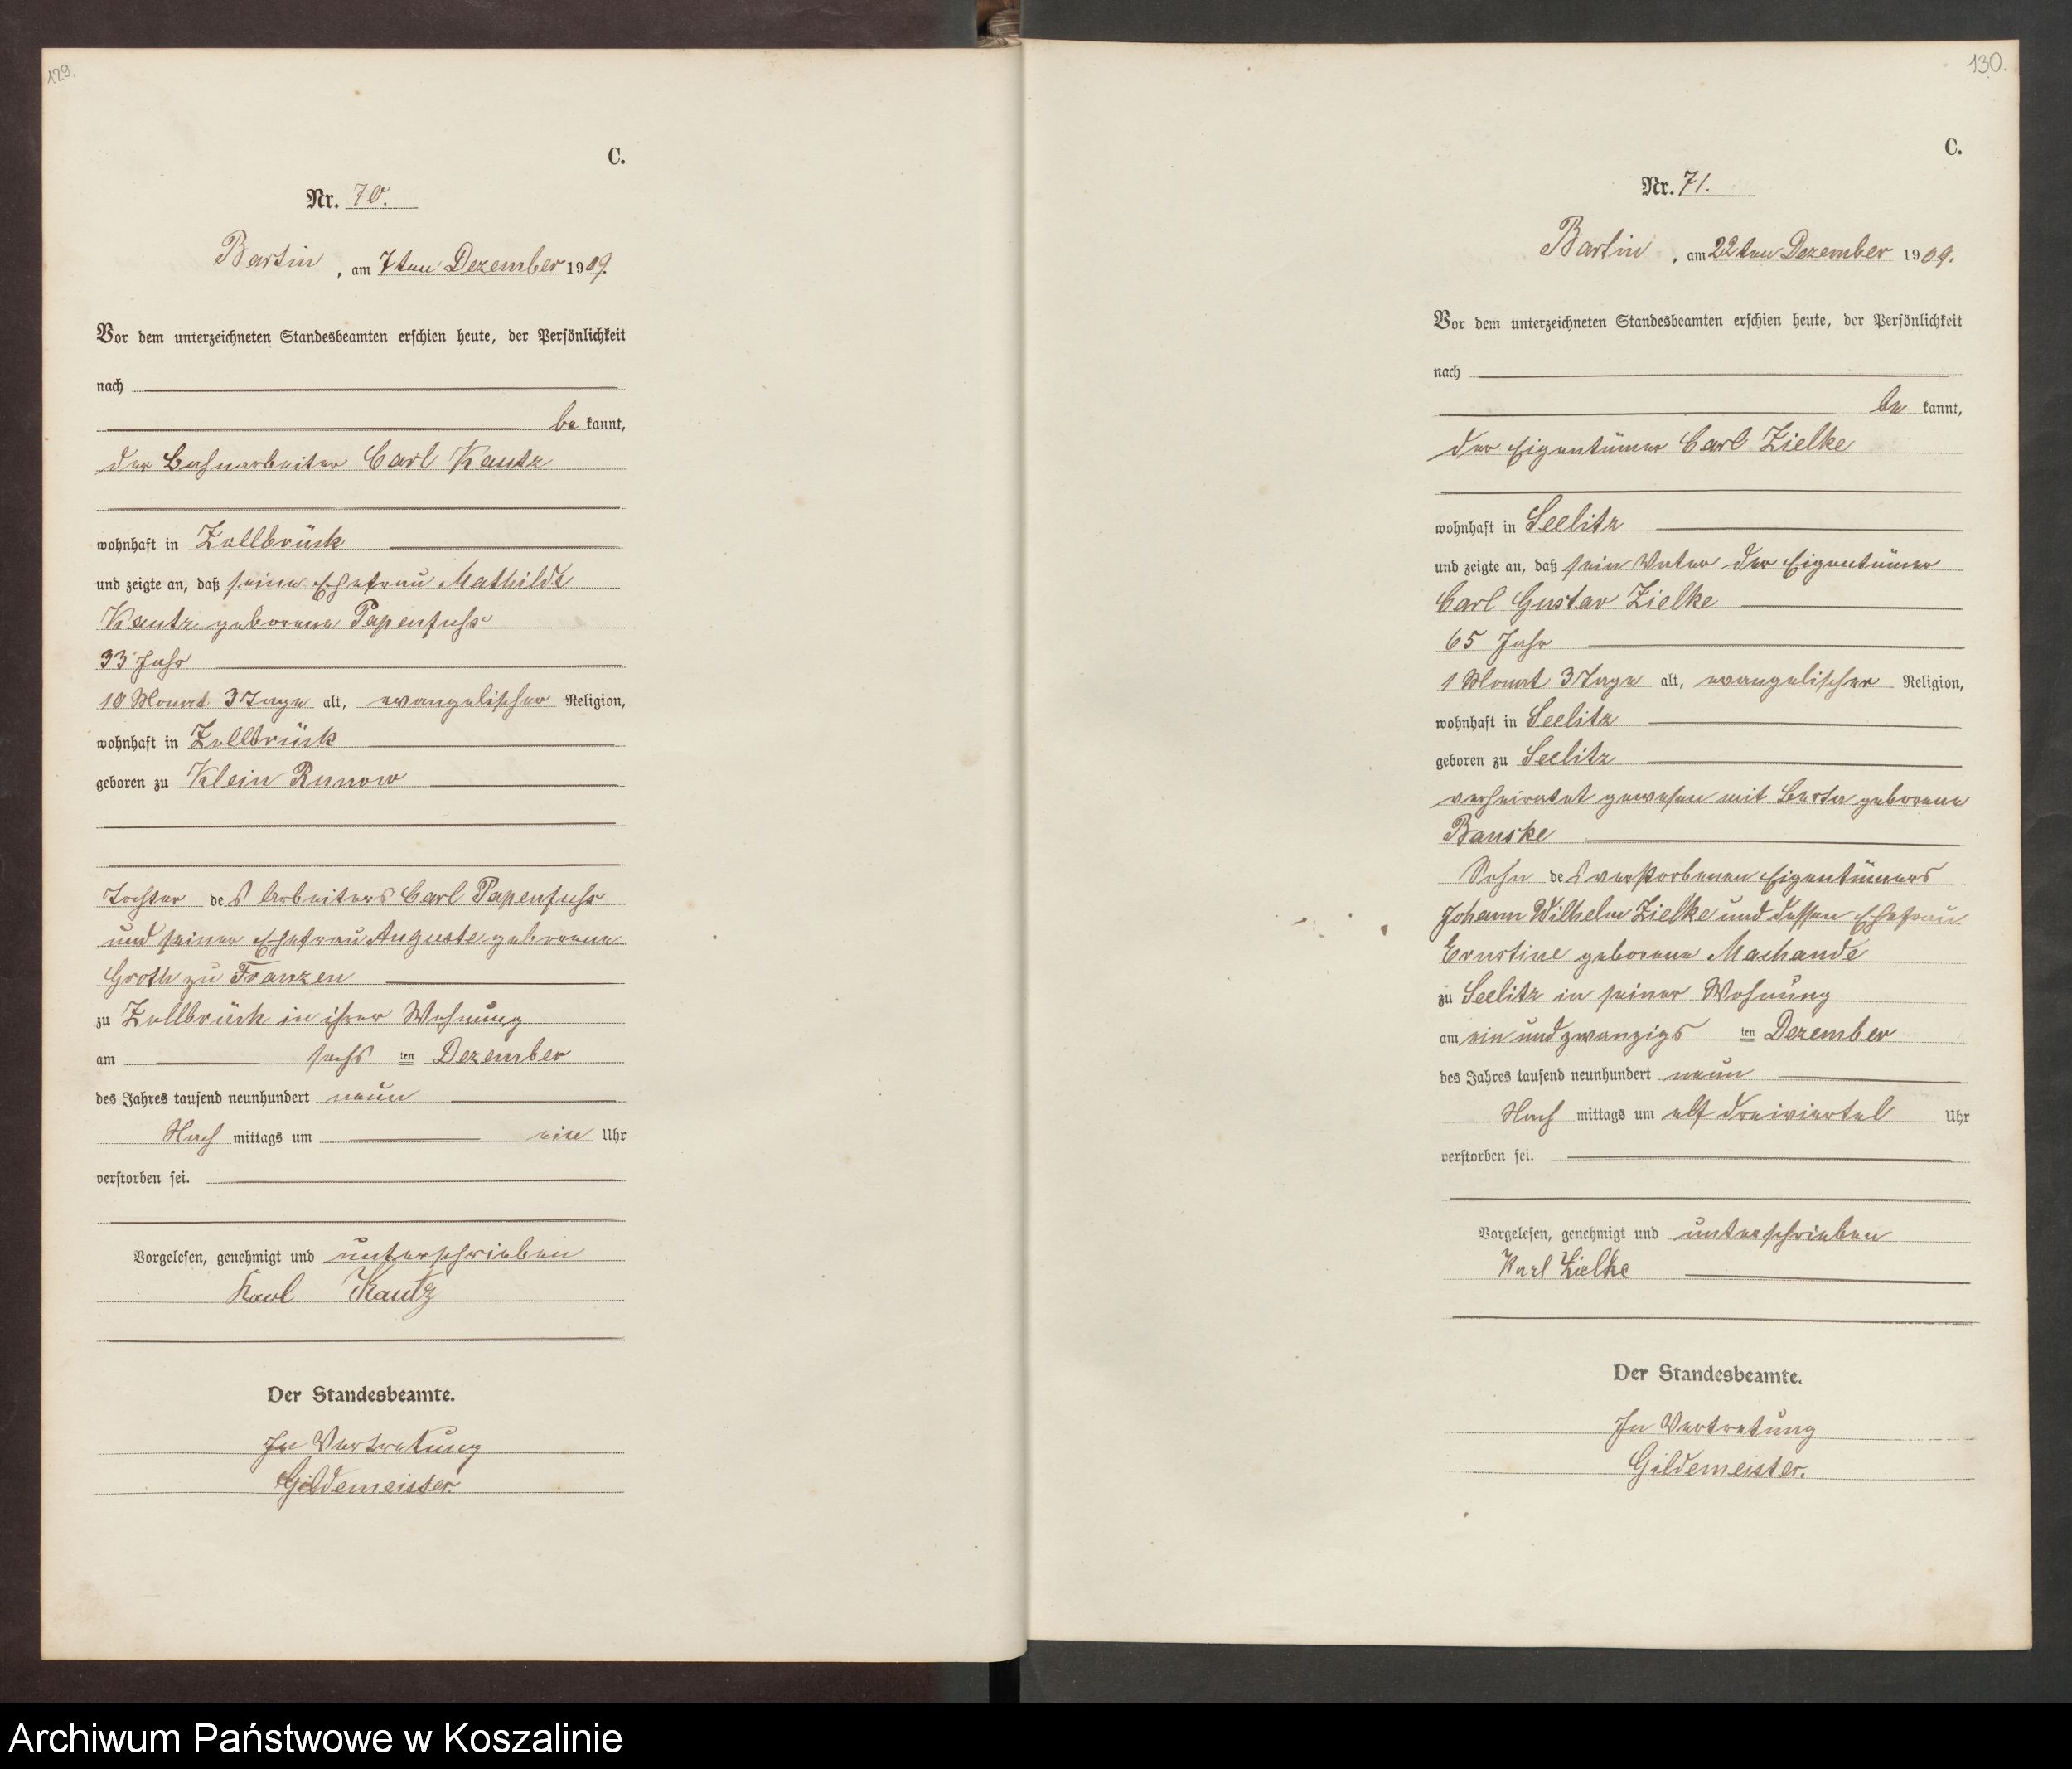 129.
C.
Nr. 70.
Bartin, am 7ten Dezember 1909.
Vor dem unterzeichneten Standesbeamten erschien heute, der Persönlichkeit
nach
be kannt,
der Bahnarbeiter Carl Kautz
wohnhaft in Zollbrück
und zeigte an, daß seine Ehefrau Mathilde
Kautz geborene Papenfuhs
33 Jahr
10 Monat 3 Tage alt, evangelischer Religion,
wohnhaft in Zollbrück
geboren zu Klein Runow
Tochter des Arbeiters Carl Papenfuhs
und seiner Ehefrau Auguste geborene
Groth zu Franzen
zu Zollbrück in ihrer Wohnung
am sechs ten Dezember
des Jahres tausend neunhundert neun
Nach mittags um ein Uhr
verstorben sei.
Vorgelesen, genehmigt und unterschrieben
Karl Kautz
Der Standesbeamte.
In Vertretung
Gildemeister.
130.
C.
Nr. 71.
Bartin, am 22ten Dezember 1909.
Vor dem unterzeichneten Standesbeamten erschien heute, der Persönlichkeit
nach
be kannt,
der Eigentümer Carl Zielke
wohnhaft in Seelitz
und zeigte an, daß sein Vater der Eigentümer
Carl Gustav Zielke
65 Jahr
1 Monat 3 Tage alt, evangelischer Religion,
wohnhaft in Seelitz
geboren zu Seelitz
verheiratet gewesen mit Berta geborene
Banske
Sohn des verstorbenen Eigentümers
Johann Wilhelm Zielke und dessen Ehefrau
Ernstine geborene
zu Seelitz in seiner Wohnung
am ein und zwanzigs ten Dezember
des Jahres tausend neunhundert neun
Nach mittags um elf dreiviertel Uhr
verstorben sei.
Vorgelesen, genehmigt und unterschrieben
Karl Zielke
Der Standesbeamte.
In Vertretung
Gildemeister.
Archiwum Państwowe w Koszalinie